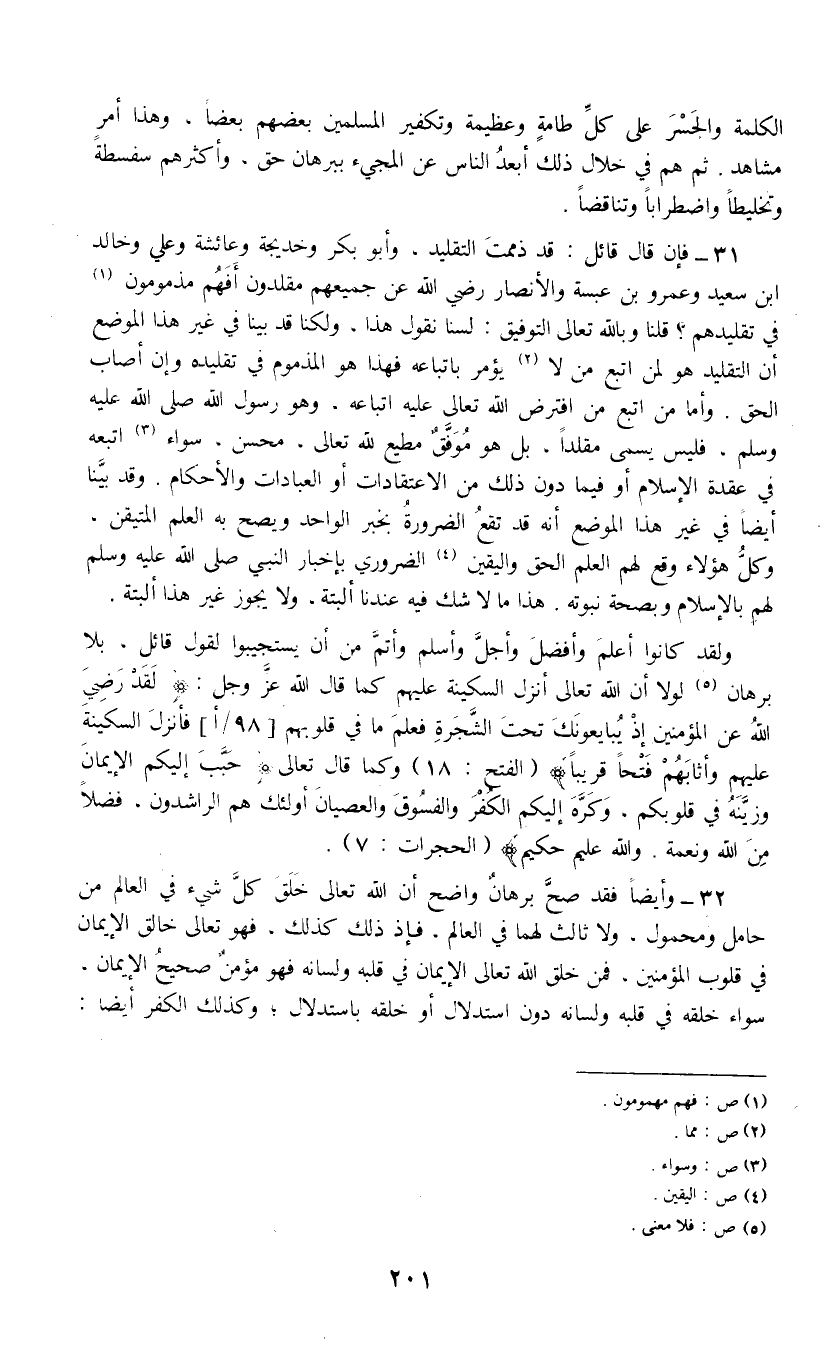 الكلمة والجَسْرَ على كلِّ طامةٍ وعظيمة وتكفير المسلمين بعضهم بعضاً . وهذا أمر
مشاهد . ثم هم في خلال ذلك أبعدُ الناس عن المجيء ببرهان حق . وأكثرهم سفسطةً
وتخليطاً واضطراباً وتناقضاً .
٣١ ــ فإن قال قائل : قد ذممتَ التقليد . وأبو بكر وخديجة وعائشة وعلي وخالد
ابن سعيد وعمرو بن عبسة والأنصار رضي الله عن جميعهم مقلدون أَفَهُم مذمومون (١)
في تقليدهم ؟ قلنا وبالله تعالى التوفيق : لسنا نقول هذا . ولكنا قد بينا في غير هذا الموضع
أن التقليد هو لمن اتبع من لا (٢) يؤمر باتباعه فهذا هو المذموم في تقليده وإن أصاب
الحق . وأما من اتبع من افترض الله تعالى عليه اتباعه . وهو رسول الله صلى الله عليه
وسلم . فليس يسمى مقلداً . بل هو مُوَفَّقٌ مطيع لله تعالى . محسن . سواء (٣) اتبعه
في عقدة الإسلام أو فيما دون ذلك من الاعتقادات أو العبادات والأحكام . وقد بيَّنا
أيضاً في غير هذا الموضع أنه قد تقعُ الضرورةُ بخبر الواحد ويصح به العلم المتيقن .
وكلُّ هؤلاء وقع لهم العلم الحق واليقين (٤) الضروري بإخبار النبي صلى الله عليه وسلم
لهم بالإسلام وبصحة نبوته . هذا ما لا شك فيه عندنا ألبتة . ولا يجوز غير هذا ألبتة .
ولقد كانوا أعلمَ وأفضلَ وأجلَّ وأسلم وأتمَّ من أن يستجيبوا لقول قائل . بلا
برهان (٥) لولا أن الله تعالى أنزل السكينة عليهم كما قال الله عزَّ وجل : ﴿ لَقَدْ رَضِيَ
اللهُ عن المؤمنين إذْ يُبايعونَكَ تحتَ الشَّجَرةِ فعلمَ ما في قلوبهم [ ٩٨/أ ] فأنزلَ السكينةَ
عليهم وأثابَهُمْ فَتْحاً قريباً﴾ ( الفتح : ١٨ ) وكما قال تعالى ﴿ حَبَّبَ إليكم الإيمانَ
وزيَّنَهُ في قلوبكم . وَكَرَّهَ إليكم الكُفْرَ والفسُوقَ والعصيانَ أولئك هم الراشدون . فضلاً
مِنَ الله ونعمة . والله عليم حكيم﴾ ( الحجرات : ٧ ) .
٣٢ ــ وأيضاً فقد صحَّ برهانٌ واضح أن الله تعالى خَلَقَ كلَّ شيء في العالم من
حامل ومحمول . ولا ثالث لهما في العالم . فإذ ذلك كذلك . فهو تعالى خالق الإيمان
في قلوب المؤمنين . فمن خلق الله تعالى الإيمان في قلبه ولسانه فهو مؤمنٌ صحيحُ الإيمان .
سواء خلقه في قلبه ولسانه دون استدلال أو خلقه باستدلال ؛ وكذلك الكفر أيضا :
(١) ص : فهم مهمومون .
(٢) ص : مما .
(٣) ص : وسواء .
(٤) ص : اليقين .
(٥) ص : فلا معنى .
٢٠١